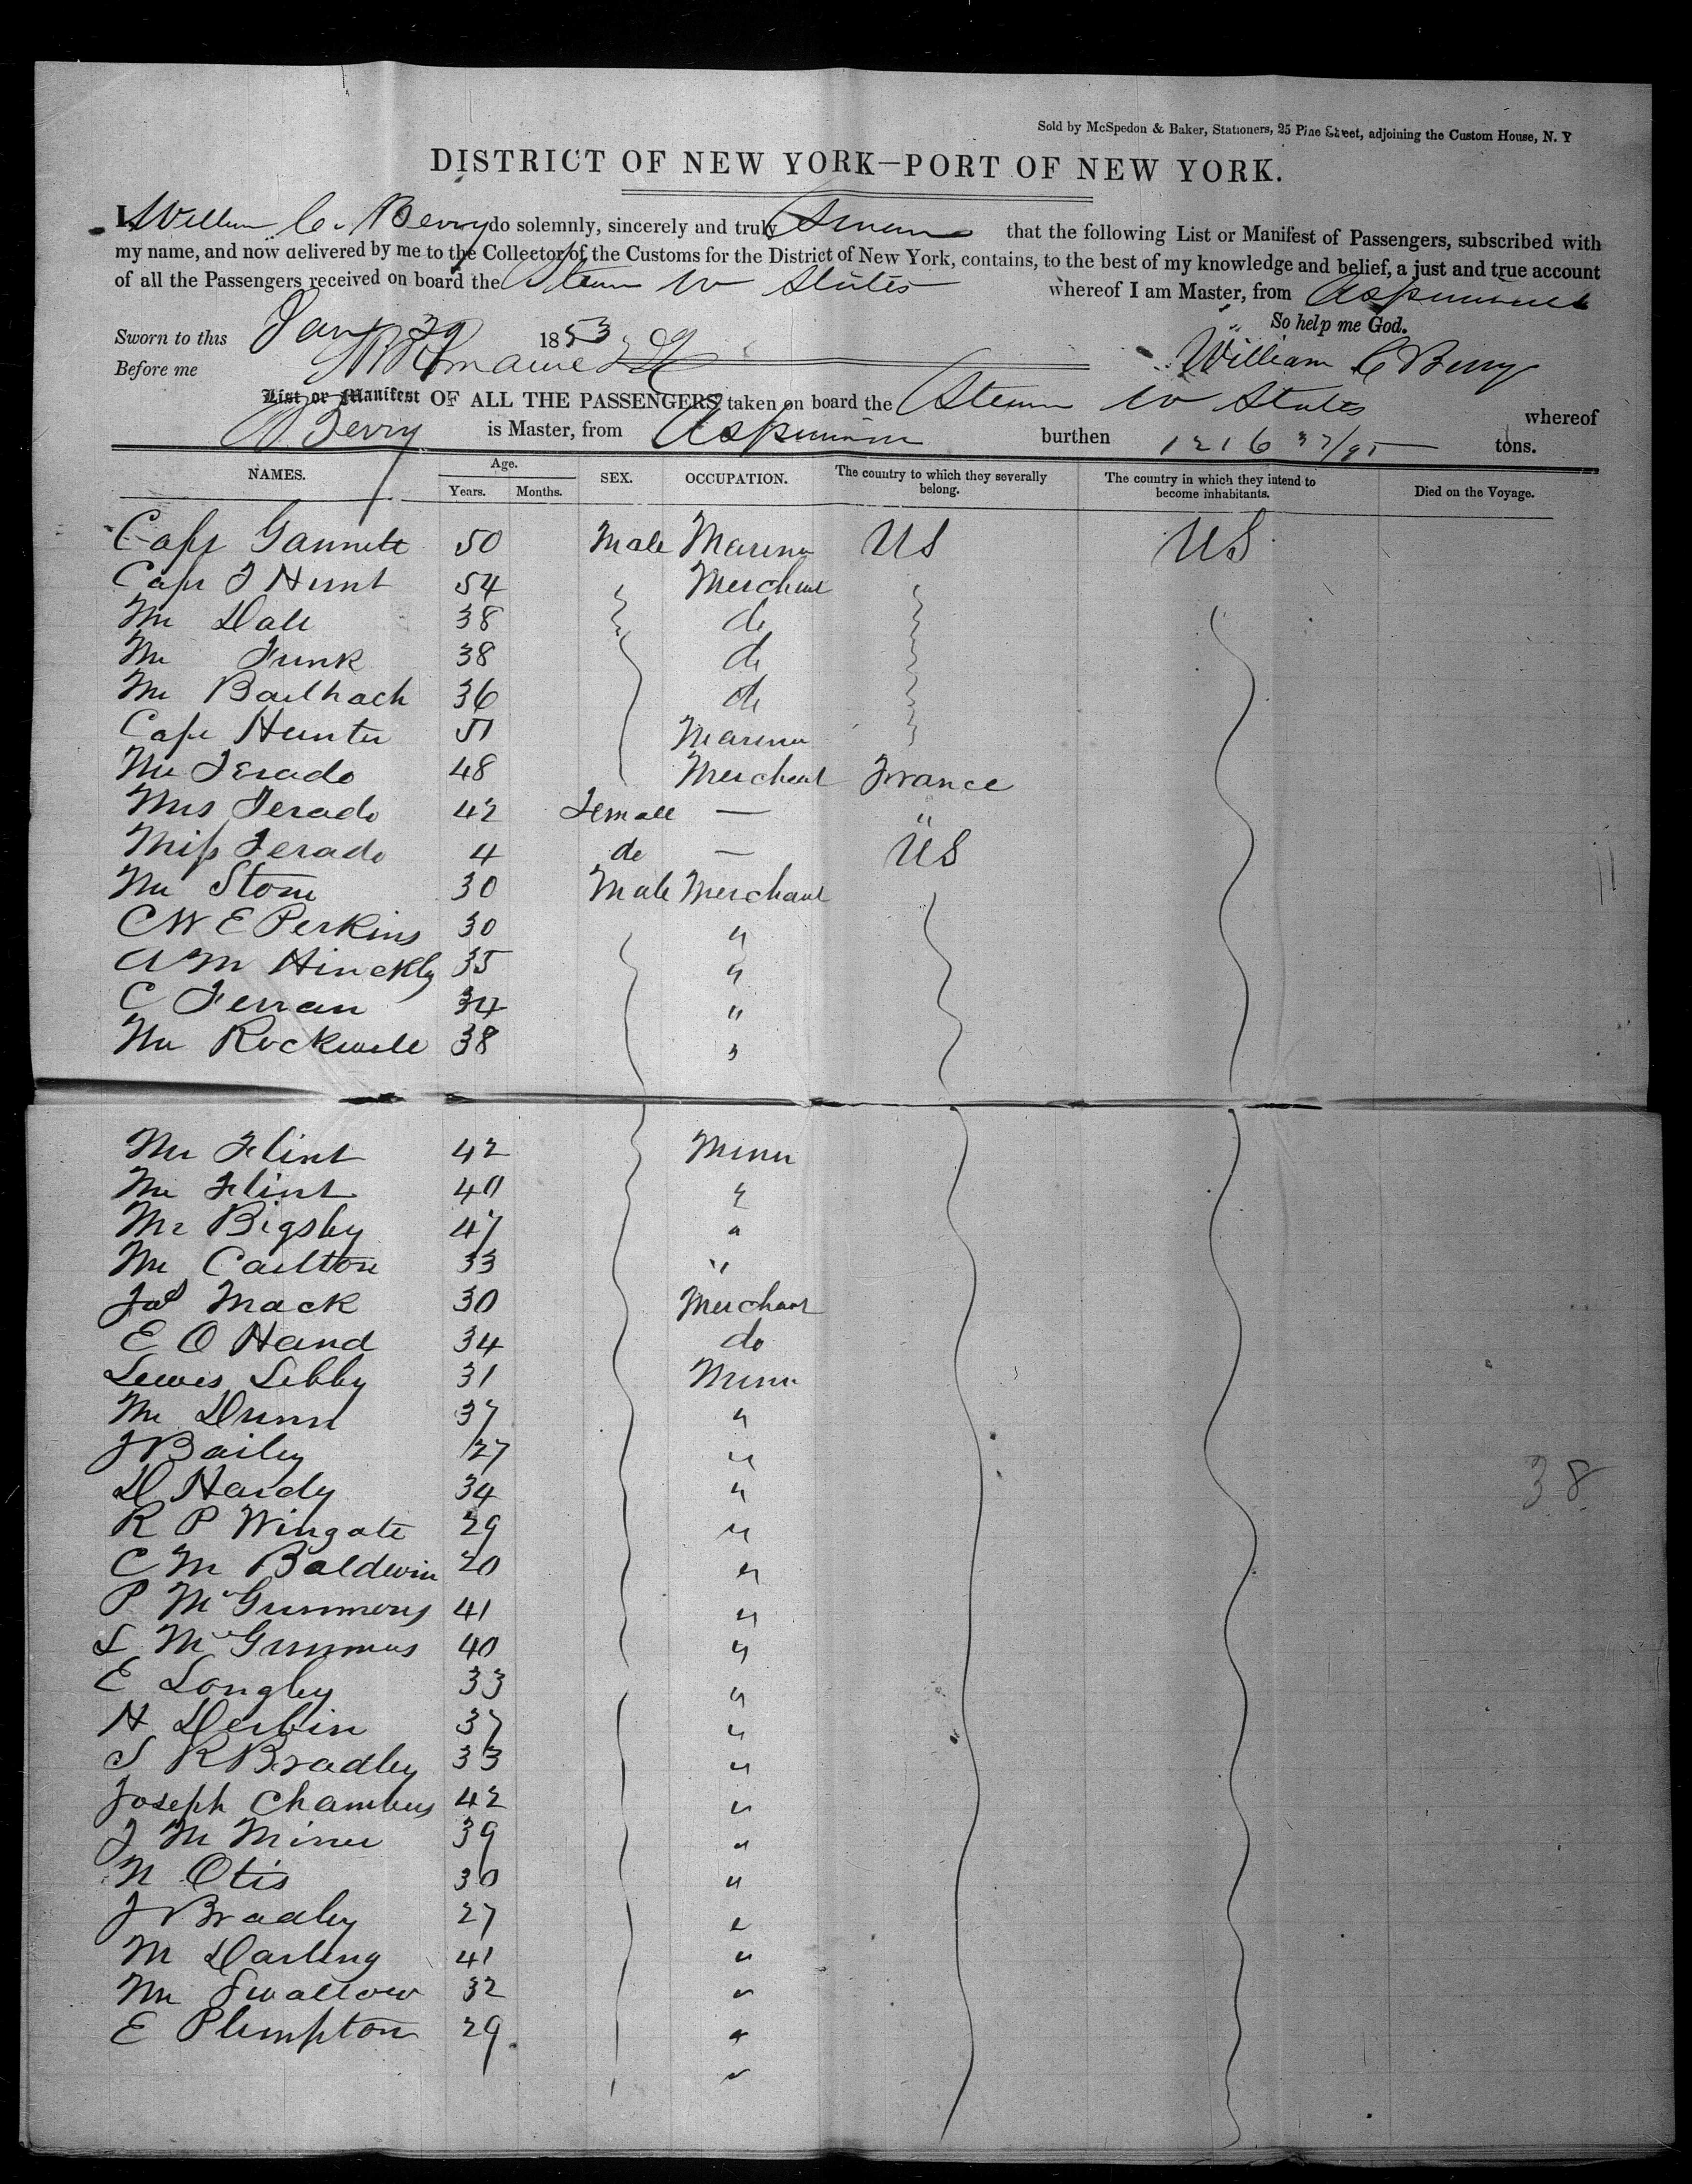 Sold by McSpedon & Baker, Stationers, 25 Pine Street, adjoining the Custom House, N. Y
DISTRICT OF NEW YORK—PORT OF NEW YORK.
I, William C. Berry do solemnly, sincerely and truly Swear that the following List or Manifest of Passengers, subscribed with
my name, and now delivered by me to the Collector of the Customs for the District of New York, contains, to the best of my knowledge and belief, a just and true account
of all the Passengers received on board the Steam U States whereof I am Master, from Aspinwall
So help me God.
Sworn to this Jany 29 1853
Before me
William C Berry
List or Manifest OF ALL THE PASSENGERS taken on board the Steam U States whereof
Berry is Master, from Aspinwall burthen 1216 37/95 tons.
NAMES. Age. Years. Months. SEX. OCCUPATION. The country to which they severally belong. The country in which they intend to become inhabitants. Died on the Voyage.
Capt Gannett 50 Male Mariner US US
Capt J Hunt 54 Merchant
Mr Dall 38 do
Mr Funk 38 do
Mr Bailhach 36 do
Capt Hunter 51 Mariner
Mr Ferado 48 Merchant France
Mrs Ferado 42 Female — "
Miss Ferado 4 do — US
Mr Stone 30 Male Merchant
C W E Perkins 30 "
A M Hinckly 35 "
C Ferran 34 "
Mr Rockwell 38 "
Mr Flint 42 Miner
Mr Flint 40 "
Mr Bigsby 47 "
Mr Carlton 33 "
Jas Mack 30 Merchant
E O Hand 34 do
Lewis Libby 31 Miner
Mr Dunn 37 "
J Baily 27 "
D Hardy 34 "
R P Wingate 29 "
C M Baldwin 20 "
P McGunmons 41 "
L McGunmons 40 "
E Longley 33 "
H Derbin 37 "
S R Bradley 33 "
Joseph Chambers 42 "
J M Miner 39 "
N Otis 30 "
J Bradley 27 "
M Darling 41 "
Mr Swallow 32 "
E Plimpton 29 "
"
38